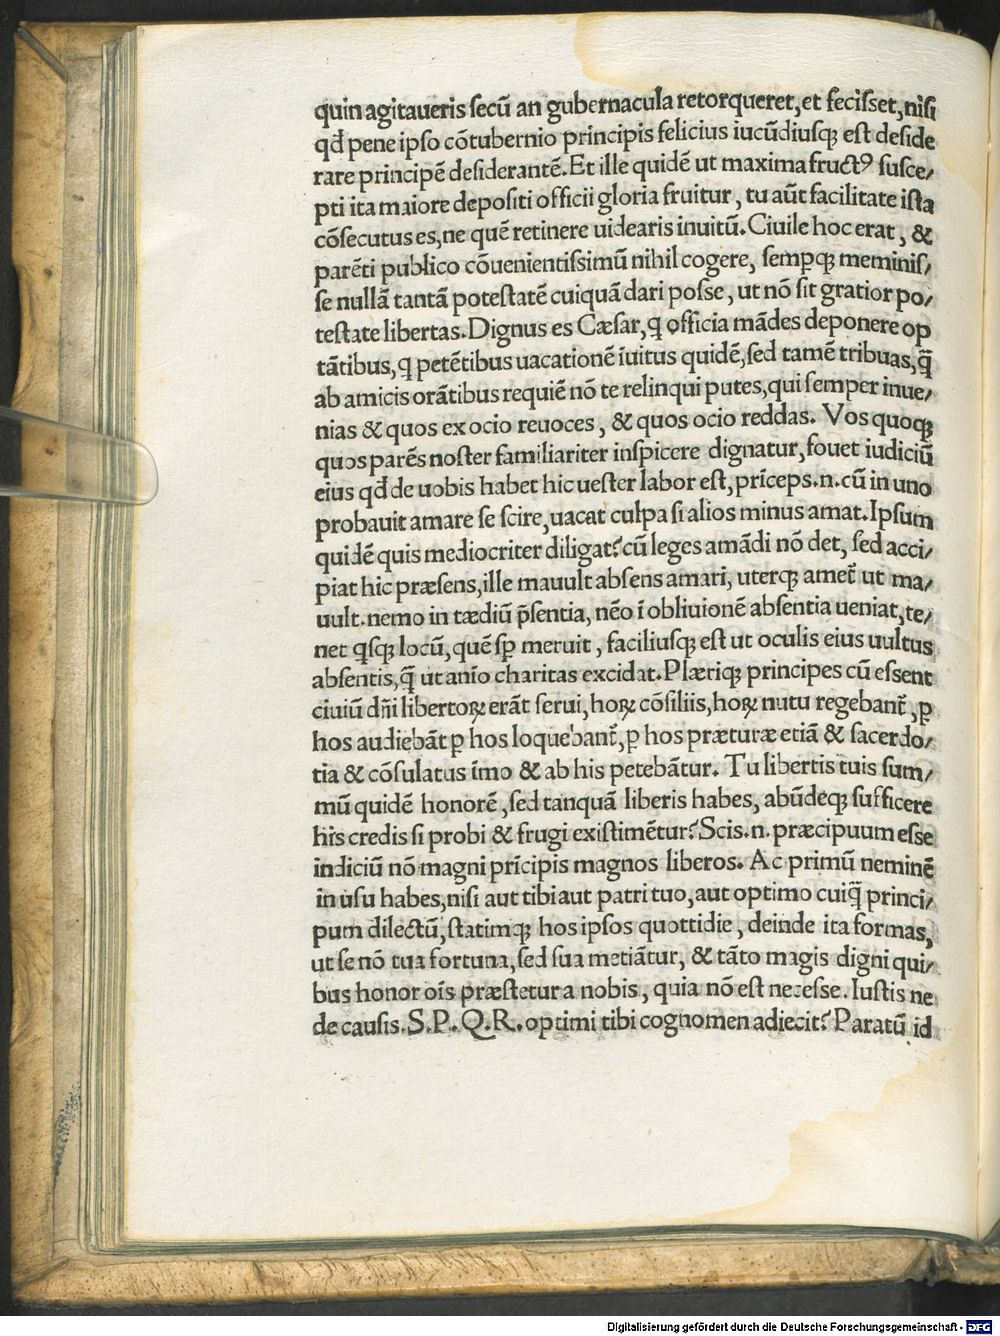 quin agitaueris secū an gubernacula retorqueret, et fecisset, nisi
qđ pene ipso cōtubernio principis felicius iucūdiusqȝ est deside
rare principē desiderantē. Et ille quidē ut maxima fructꝰ susce/
pti ita maiore depositi officii gloria fruitur, tu aūt facilitate ista
cōsecutus es, ne quē retinere uidearis inuitū. Ciuile hoc erat, &
parēti publico cōuenientissimū nihil cogere, semꝑqȝ meminis/
se nullā tantā potestatē cuiquā dari posse, ut nō sit gratior po/
testate libertas. Dignus es Cæsar, q̨ officia mādes deponere op
tātibus, q̨ petētibus uacationē īuitus quidē, sed tamē tribuas, q̄
ab amicis orātibus requiē nō te relinqui putes, qui semper inue/
nias & quos ex ocio reuoces, & quos ocio reddas. Vos quoqȝ
quos parēs noster familiariter inspicere dignatur, fouet iudiciū
eius qđ de uobis habet hic uester labor est, prīceps .n. cū in uno
probauit amare se scire, uacat culpa si alios minus amat. Ipsum
quidē quis mediocriter diligat? cū leges amādi nō det, sed acci/
piat hic præsens, ille mauult absens amari, uterqȝ amet̄ ut ma/
uult. nemo in tædiū p̄sentia, nēo ī obliuionē absentia ueniat, te/
net q̨sqȝ locū, quē sꝑ meruit, faciliusqȝ est ut oculis eius uultus
absentis, q̄ ut anīo charitas excidat. Plæriqȝ principes cū essent
ciuiū dn̄i libertoꝝ erāt serui, hoꝝ cōsiliis, hoꝝ nutu regebant̄, ꝑ
hos audiebāt ꝑ hos loquebant̄, ꝑ hos præturæ etiā & sacerdo/
tia & cōsulatus īmo & ab his petebātur. Tu libertis tuis sum/
mū quidē honorē, sed tanquā liberis habes, abūdeqȝ sufficere
his credis si probi & frugi existimētur? Scis .n. præcipuum esse
indiciū nō magni prīcipis magnos liberos. Ac primū neminē
in usu habes, nisi aut tibi aut patri tuo, aut optimo cuiq̄ princi/
pum dilectū, statimqȝ hos ipsos quottidie, deinde ita formas,
ut se nō tua fortuna, sed sua metiātur, & tāto magis digni qui/
bus honor oīs præstetur a nobis, quia nō est necesse. Iustis ne
de causis .S.P.Q.R. optimi tibi cognomen adiecit? Paratū id
Digitalisierung gefördert durch die Deutsche Forschungsgemeinschaft - DFG